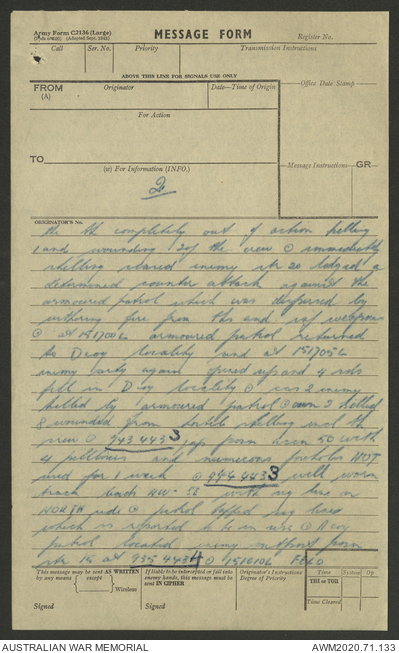 Army Form C2136 (Large)
(Adapted Sept. 1942)
MESSAGE FORM
Register No.
Call
Ser. No.
Priority
Transmission Instructions
ABOVE THIS LINE FOR SIGNALS USE ONLY
FROM
(A)
Originator
Date—Time of Origin
Office Date Stamp
For Action
TO
(W) For Information (INFO.)
Message Instructions
GR
2
ORIGINATOR'S No.
the tk completely out of action killing
1 and wounding 2 of the crew ⊙ immediately
shelling ceased enemy str 20 lodged a
determined counter attack against the
armoured patrol which was dispersed by
withering fire from tks and inf weapons
⊙ at 151700L armoured patrol returned
to D coy locality and at 151705L
enemy arty again opened up and 4 rds
fell in D coy locality ⊙ cas 2 enemy
killed by armoured patrol ⊙ own 2 killed
8 wounded from hostile shelling incl the
crew ⊙ 943 4433 jap posn been 50 with
4 pillboxes and numerous foxholes NOT
used for 1 week ⊙ 944 4433 well worn
track leads NW - SE with sig line on
NORTH side ⊙ patrol tapped sig lines
which is reported to be in use ⊙ A coy
patrol located enemy outpost posn
str 15 at 935 4434 ⊙ 151010L
This message may be sent AS WRITTEN
by any means
except
Wireless
If liable to be intercepted or fall into
enemy hands, this message must be
sent IN CIPHER
Originator's Instructions
Degree of Priority
Time
System
Op
THI or TOR
Time Cleared
Signed
Signed
AUSTRALIAN WAR MEMORIAL
AWM2020.71.133